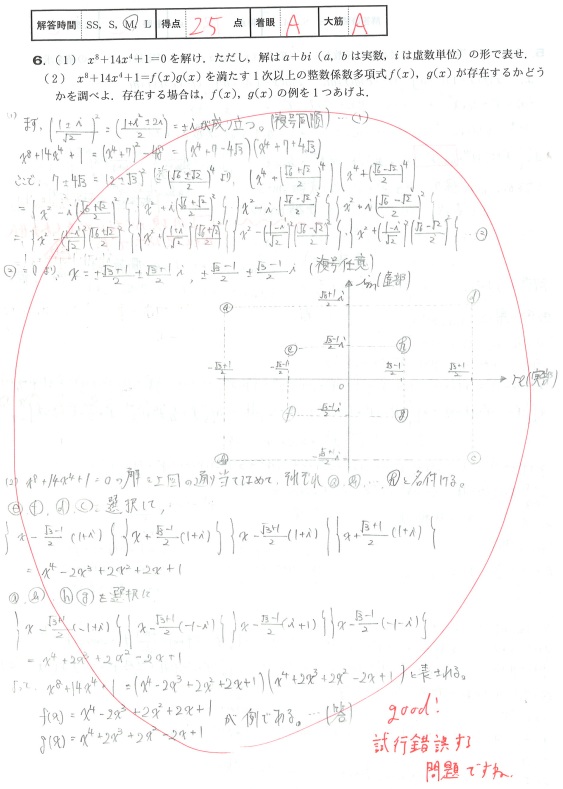 解答時間 SS, S, M, L 得点 25 点 着眼 A 大筋 A
6. (1) x⁸+14x⁴+1=0を解け．ただし，解はa+bi (a, bは実数，iは虚数単位) の形で表せ．
(2) x⁸+14x⁴+1=f(x)g(x) を満たす1次以上の整数係数多項式f(x), g(x)が存在するかどう
かを調べよ．存在する場合は，f(x), g(x)の例を1つあげよ．
(1) まず、((1±i)/√2)² = (1+i²±2i)/2 = ±i が成り立つ。(複号同順) …①
x⁸+14x⁴+1 = (x⁴+7)²-48 = (x⁴+7-4√3)(x⁴+7+4√3)
ここで、7±4√3 = (2±√3)² = ((√6±√2)/2)⁴ より、(x⁴+((√6+√2)/2)⁴)(x⁴+((√6-√2)/2)⁴)
={x²-i((√6+√2)/2)²}{x²+i((√6+√2)/2)²}{x²-i((√6-√2)/2)²}{x²+i((√6-√2)/2)²}
…②
②=0より、x=±(√3+1)/2±(√3-1)/2 i, ±(√3-1)/2±(√3-1)/2 i (複号任意)
im(虚部)
re(実部)
0
(2) x⁸+14x⁴+1=0の解を上図の通り当てはめて、それぞれⓐ, ⓑ, … ⓗと名付ける。
を選択して、
{x-(√3-1)/2 (1+i)}{x+(√3-1)/2 (1+i)}{x-(√3+1)/2 (1+i)}{x+(√3+1)/2 (1+i)}
= x⁴-2x³+2x²+2x+1
を選択して
{x-(√3+1)/2 (-1+i)}{x-(√3+1)/2 (-1-i)}{x-(√3-1)/2 (i+1)}{x-(√3-1)/2 (-1-i)}
= x⁴+2x³+2x²-2x+1
よって、x⁸+14x⁴+1=(x⁴-2x³+2x²+2x+1)(x⁴+2x³+2x²-2x+1)と表される。
f(x)=x⁴-2x³+2x²+2x+1
g(x)=x⁴+2x³+2x²-2x+1
が例である。…(答)
good!
試行錯誤する
問題ですね．